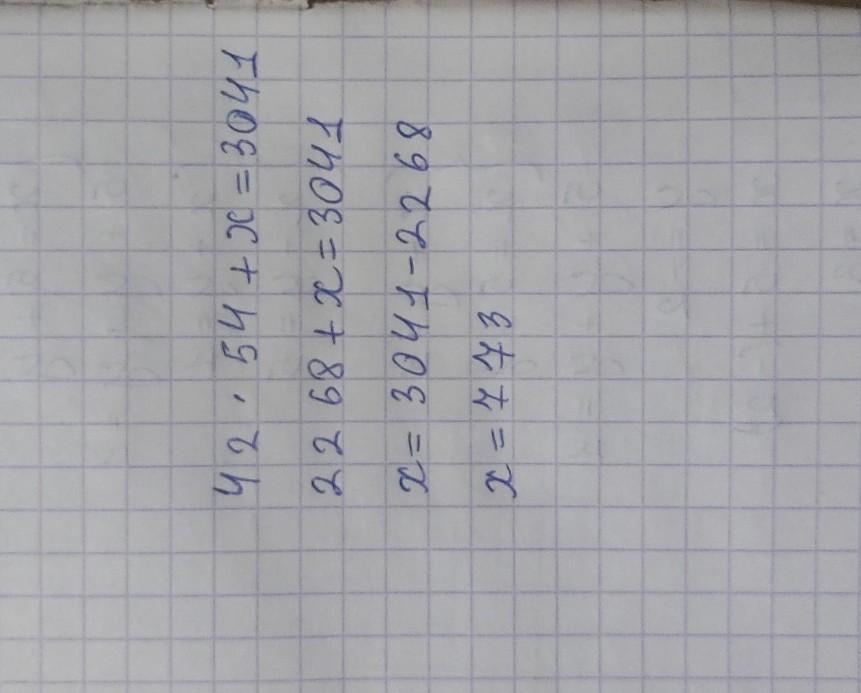 42 · 54 + x = 3041
2268 + x = 3041
x = 3041 - 2268
x = 773